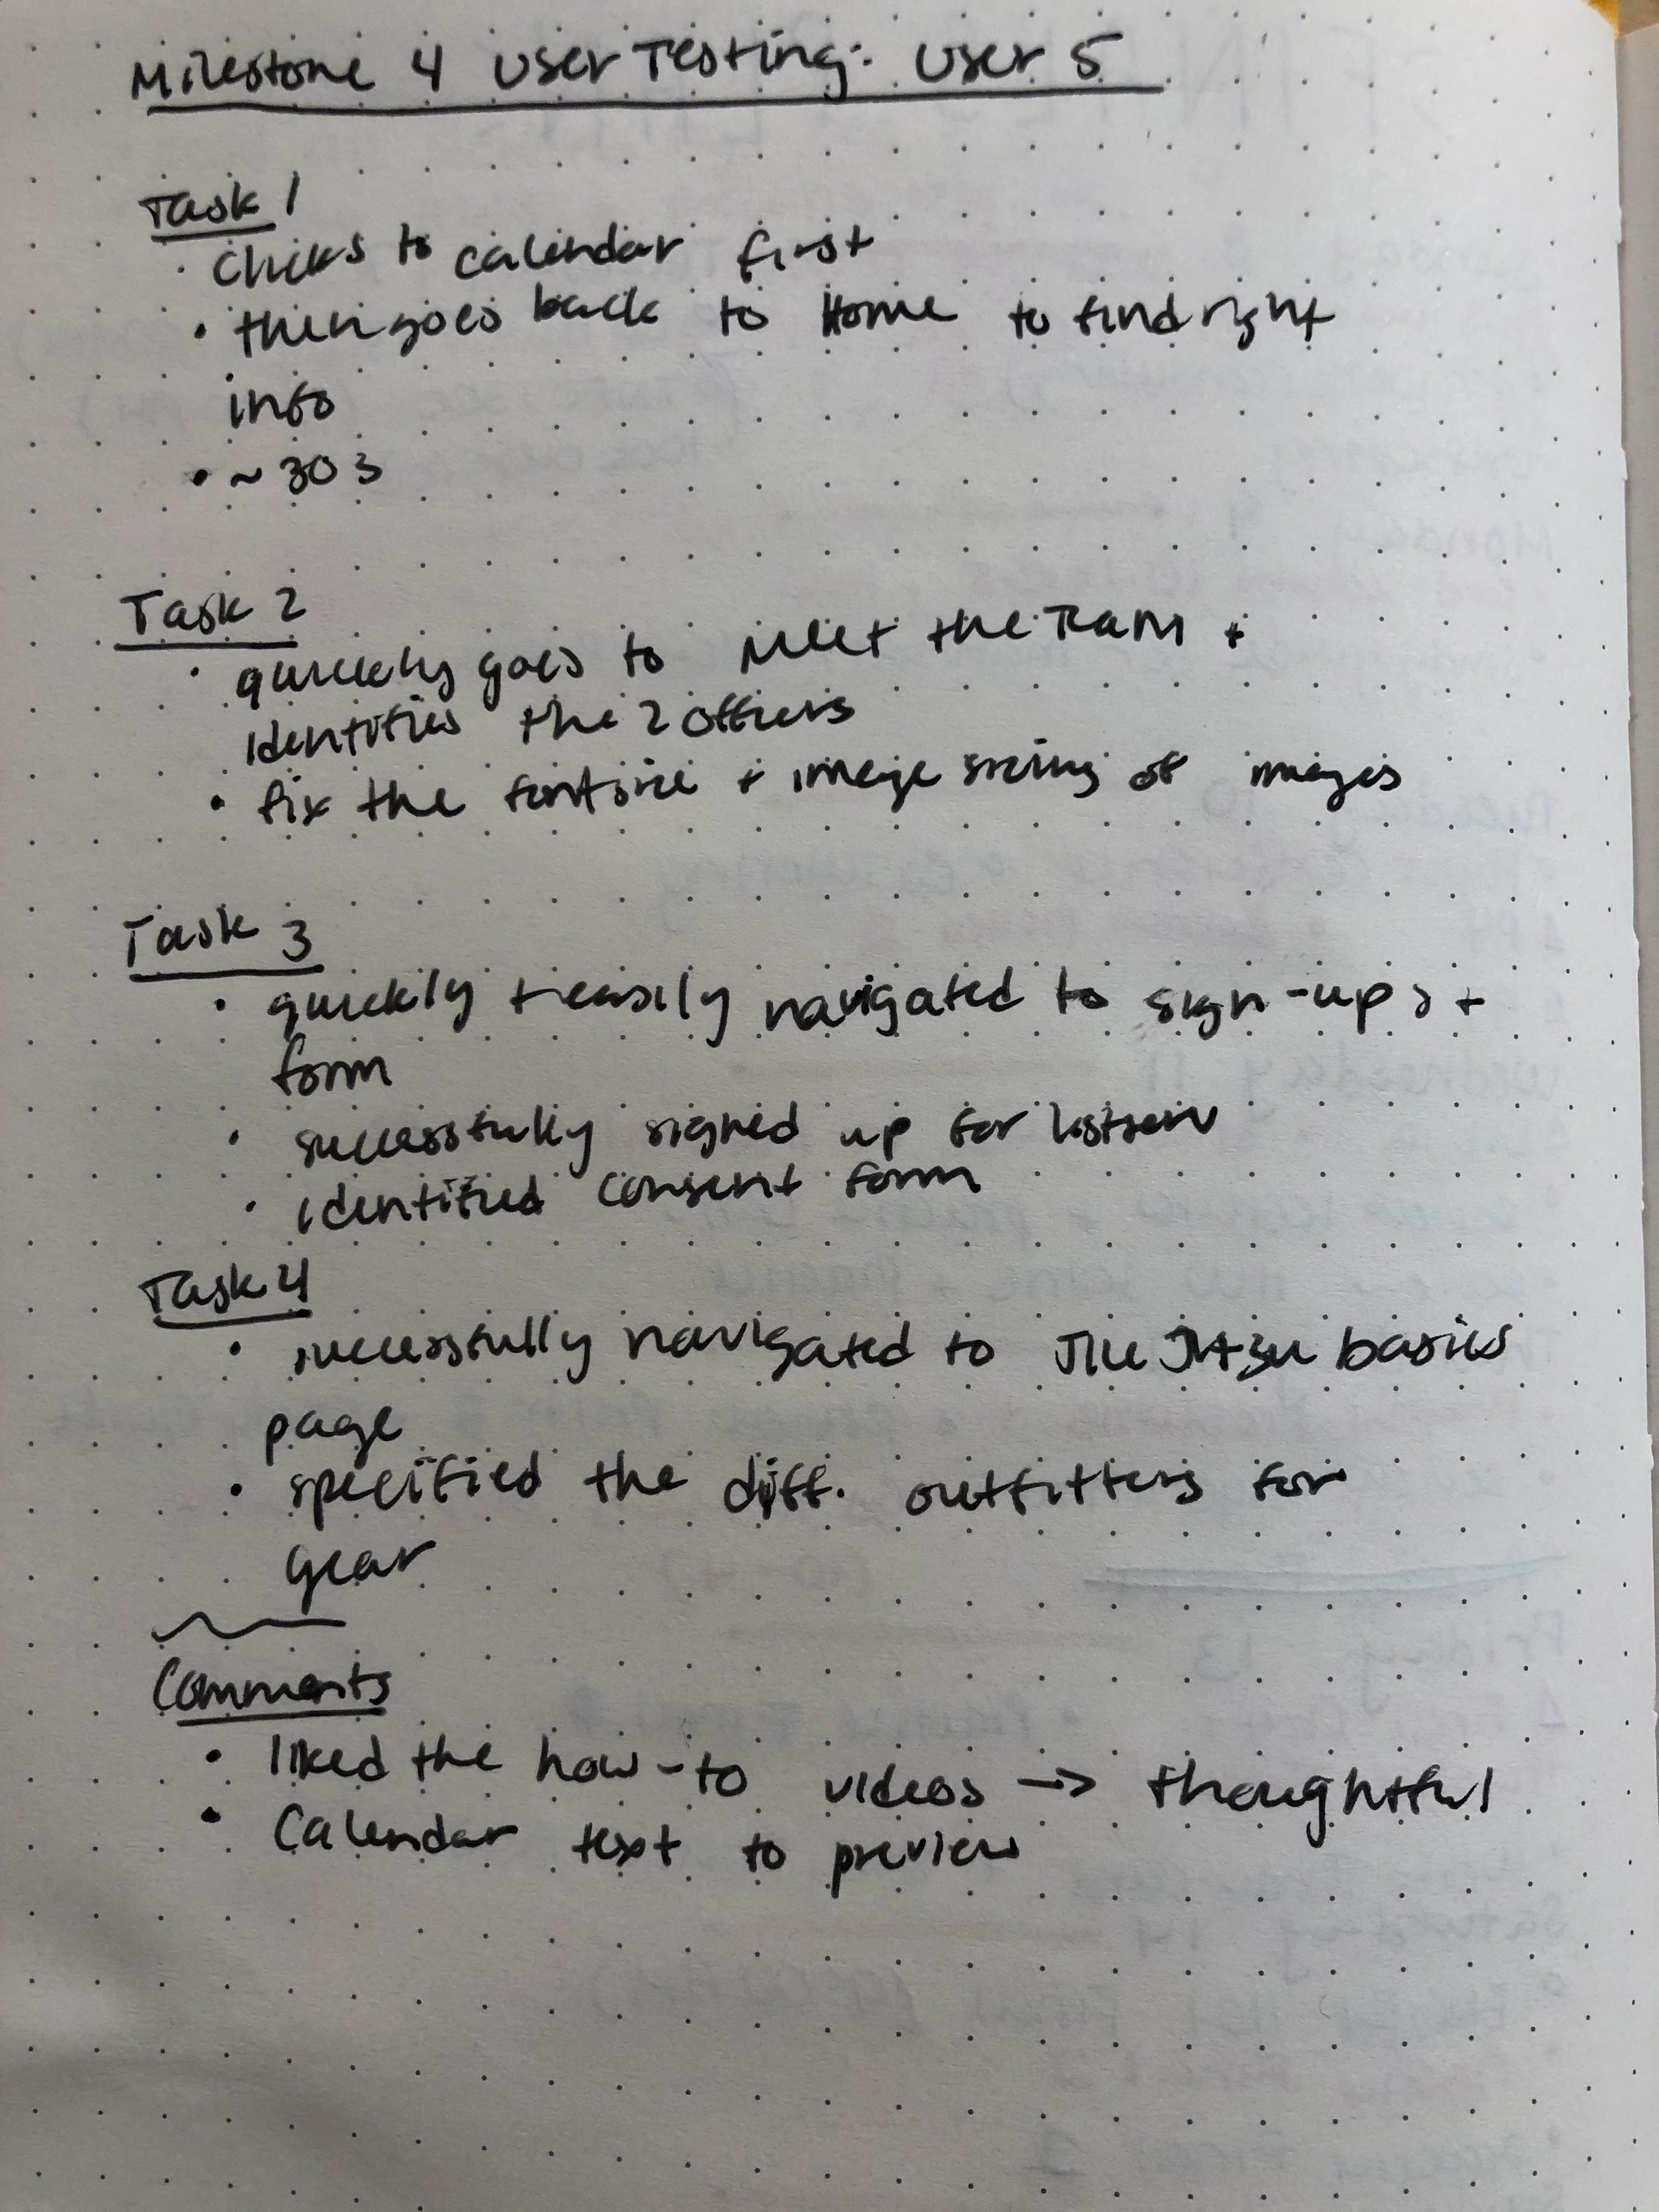 Milestone 4 User Testing: User 5
Task 1
• Clicks to calendar first
• then goes back to Home to find right
info
• ~ 30 s
Task 2
• quickly goes to Meet the Team +
identifies the 2 officers
• fix the fontsize + image sizing of images
Task 3
• quickly + easily navigated to sign-ups +
form
• successfully signed up for listserv
• identified consent form
Task 4
• successfully navigated to Jiu Jitsu basics
page
• specified the diff. outfitters for
gear
Comments
• liked the how-to videos → thoughtful
• Calendar text to preview